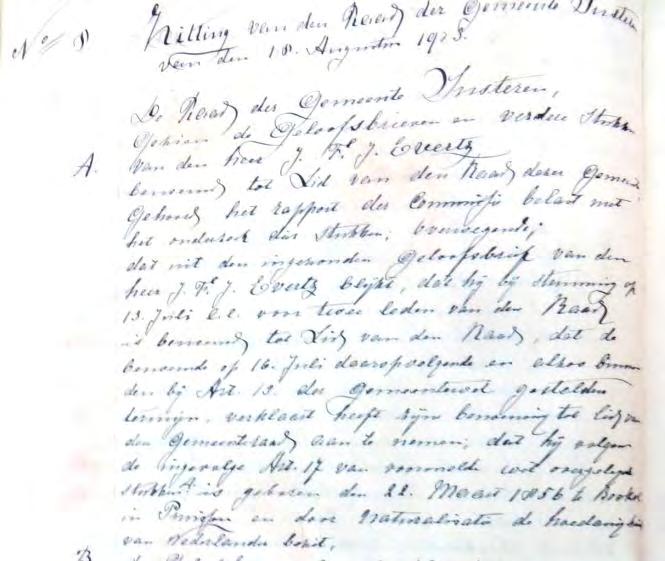 No 8 Zitting van den Raad der Gemeente Insteren
van den 18. Augustus 1923.
De Raad der Gemeente Insteren,
Gezien de Geloofsbrieven en verdere Stukken
A. van den heer J. Fl. J. Evertz
benoemd tot Lid van den Raad dezer Gemeente
Gehoord het rapport der Commissie belast met
het onderzoek dier stukken; overwegende;
dat uit den ingezonden Geloofsbrief van den
heer J. Fl. J. Evertz blijkt, dat hij bij stemming op
13. Juli l.l. voor twee leden van den Raad
is benoemd tot Lid van den Raad, dat de
benoemde op 16. Juli daaropvolgende en alzoo binnen
den bij Art. 13. der Gemeentewet gestelden
termijn, verklaart heeft zijn benoeming tot lid van
den Gemeenteraad aan te nemen; dat hij volgens
de ingevolge Art. 17 van voormelde wet overgelegde
stukken is geboren den 22. Maart 1856 te
in Pruisen en door Naturalisatie de hoedanigheid
van Nederlander bezit,
B.